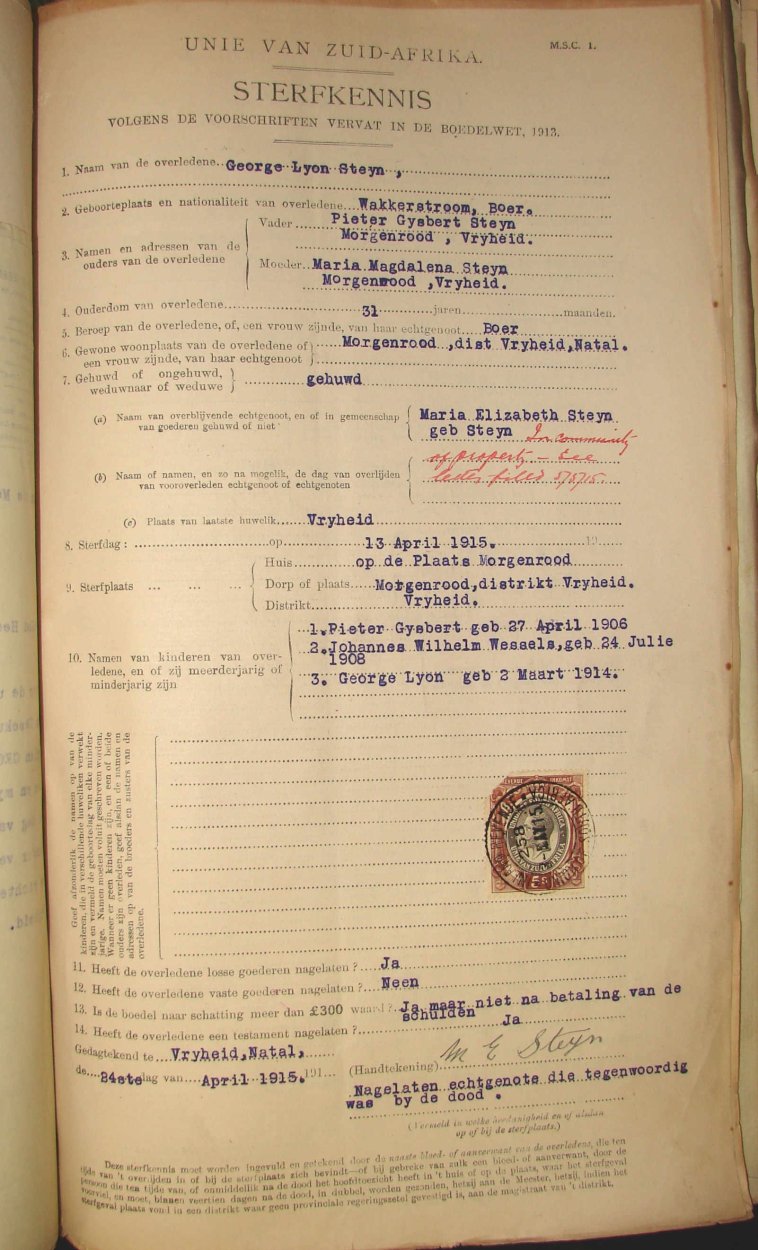 UNIE VAN ZUID-AFRIKA.
M.S.C. 1.
STERFKENNIS
VOLGENS DE VOORSCHRIFTEN VERVAT IN DE BOEDELWET, 1913.
1. Naam van de overledene George Lyon Steyn,
2. Geboorteplaats en nationaliteit van overledene Wakkerstroom, Boer.
3. Namen en adressen van de ouders van de overledene
Vader Pieter Gysbert Steyn
Morgenrood, Vryheid.
Moeder Maria Magdalena Steyn
Morgenwood ,Vryheid.
4. Ouderdom van overledene 31 jaren maanden.
5. Beroep van de overledene, of, een vrouw zijnde, van haar echtgenoot Boer
6. Gewone woonplaats van de overledene of Morgenrood ,dist Vryheid,Natal.
een vrouw zijnde, van haar echtgenoot
7. Gehuwd of ongehuwd, gehuwd
weduwnaar of weduwe
(a) Naam van overblijvende echtgenoot, en of in gemeenschap Maria Elizabeth Steyn
van goederen gehuwd of niet geb Steyn In community
of property - See
(b) Naam of namen, en zo na mogelik, de dag van overlijden letter filed 5/5/15.
van vooroverleden echtgenoot of echtgenoten
(c) Plaats van laatste huwelik Vryheid
8. Sterfdag: op 13 April 1915. 19
9. Sterfplaats ... ... ...
Huis op de Plaats Morgenrood
Dorp of plaats Morgenrood,distrikt Vryheid.
Distrikt Vryheid.
10. Namen van kinderen van over-
ledene, en of zij meerderjarig of
minderjarig zijn
1. Pieter Gysbert geb 27 April 1906
2. Johannes Wilhelm Wessels,geb 24 Julie
1908
3. George Lyon geb 2 Maart 1914.
Geef afzonderlik de namen op van de
kinderen, die in verschillende huweliken verwekt
zijn en vermeld de geboortedag van elke minder-
jarige. Namen moeten voluit geschreven worden.
Wanneer er geen kinderen zijn, en een of beide
ouders zijn overleden, geef alsdan de namen en
adressen op van de broeders en zusters van de
overledene.
5s
11. Heeft de overledene losse goederen nagelaten? Ja
12. Heeft de overledene vaste goederen nagelaten? Neen
13. Is de boedel naar schatting meer dan £300 waard? Ja maar niet na betaling van de
schulden
14. Heeft de overledene een testament nagelaten? Ja
Gedagtekend te Vryheid,Natal,
de 24ste dag van April 1915. 191
(Handtekening) M E Steyn
Nagelaten echtgenote die tegenwoordig
was by de dood .
(Vermeld in welke hoedanigheid en of alsdan
op of bij de sterfplaats.)
Deze sterfkennis moet worden ingevuld en getekend door de naaste bloed- of aanverwant van de overledene, die ten
tijde van 't overlijden in of bij de sterfplaats zich bevindt—of bij gebreke van zulk een bloed- of aanverwant, door de
persoon die ten tijde van, of onmiddellik na de dood het hoofdtoezicht heeft in 't huis of op de plaats, waar het sterfgeval
voorviel, en moet, binnen veertien dagen na de dood, in dubbel, worden gezonden, hetzij aan de Meester, hetzij, indien het
sterfgeval plaats vond in een distrikt waar geen provinciale regeringszetel gevestigd is, aan de magistraat van 't distrikt.